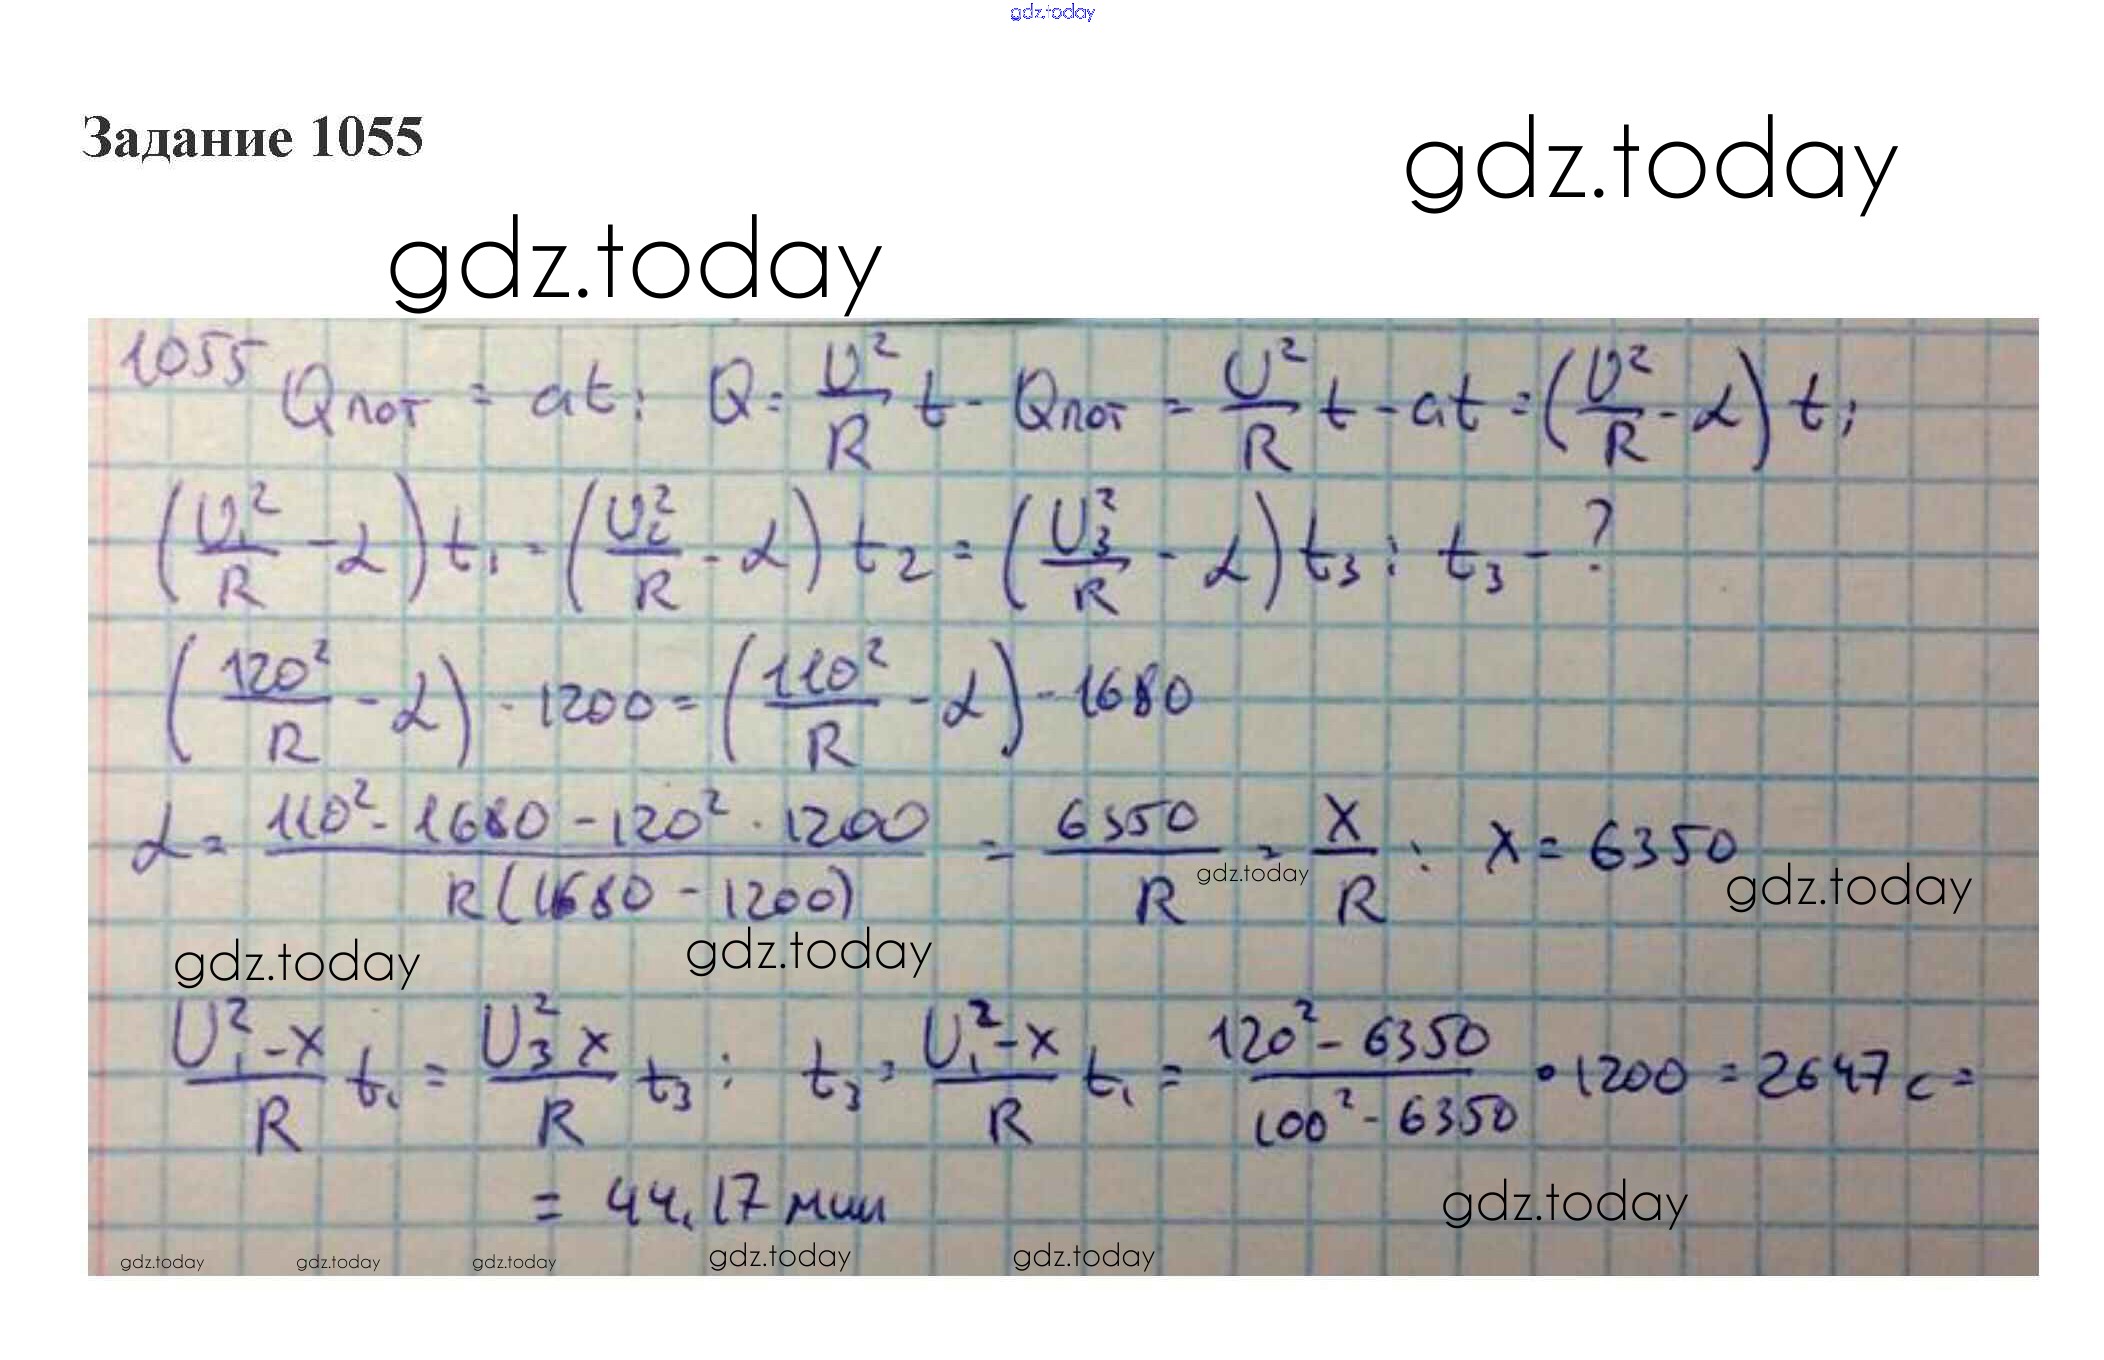 gdz.today
Задание 1055
gdz.today
gdz.today
1055 Qпот = at; Q = U²/R t - Qпот = U²/R t - at = (U²/R - α) t;
(U₁²/R - α) t₁ = (U₂²/R - α) t₂ = (U₃²/R - α) t₃; t₃ - ?
(120²/R - α) · 1200 = (110²/R - α) · 1680
α = (110² · 1680 - 120² · 1200)/(R(1680 - 1200)) = 6350/R = X/R; X = 6350
gdz.today
gdz.today
gdz.today gdz.today
(U₁² - x)/R t₁ = (U₃² x)/R t₃; t₃ = (U₁² - x)/R t₁ = (120² - 6350)/(100² - 6350) · 1200 = 2647 с =
= 44,17 мин
gdz.today
gdz.today gdz.today gdz.today gdz.today gdz.today